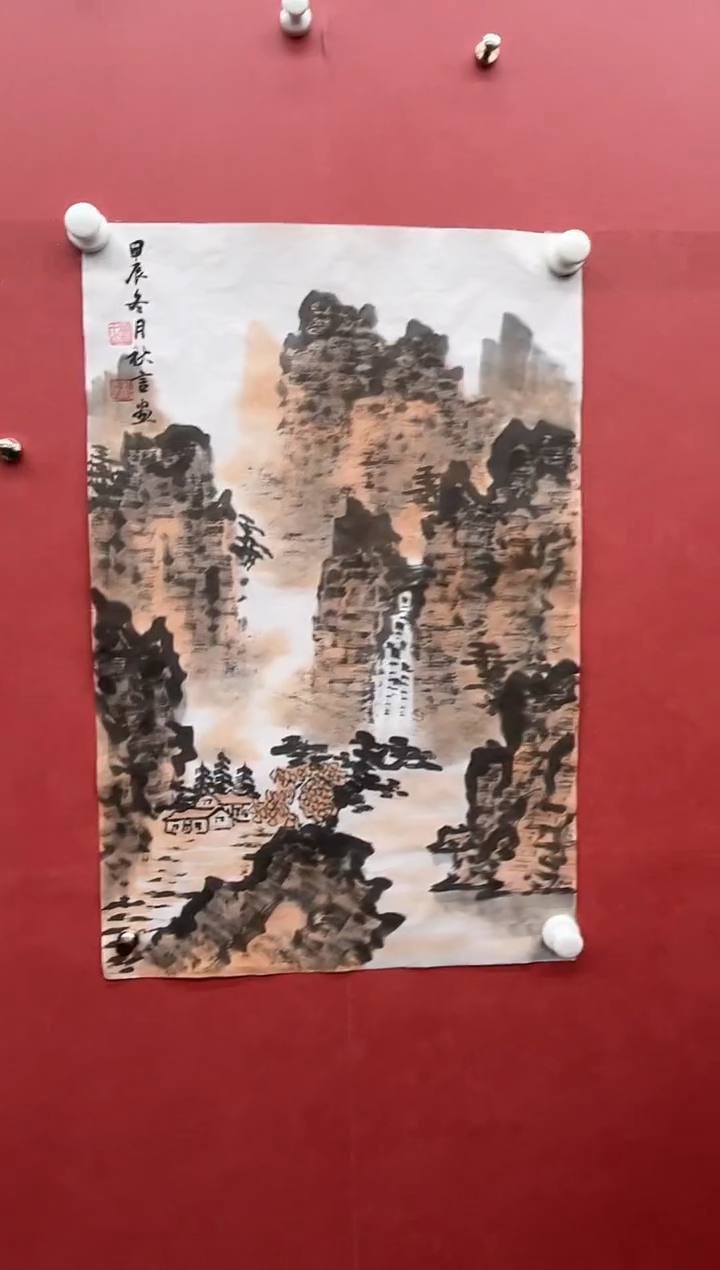 甲辰冬月秋言画